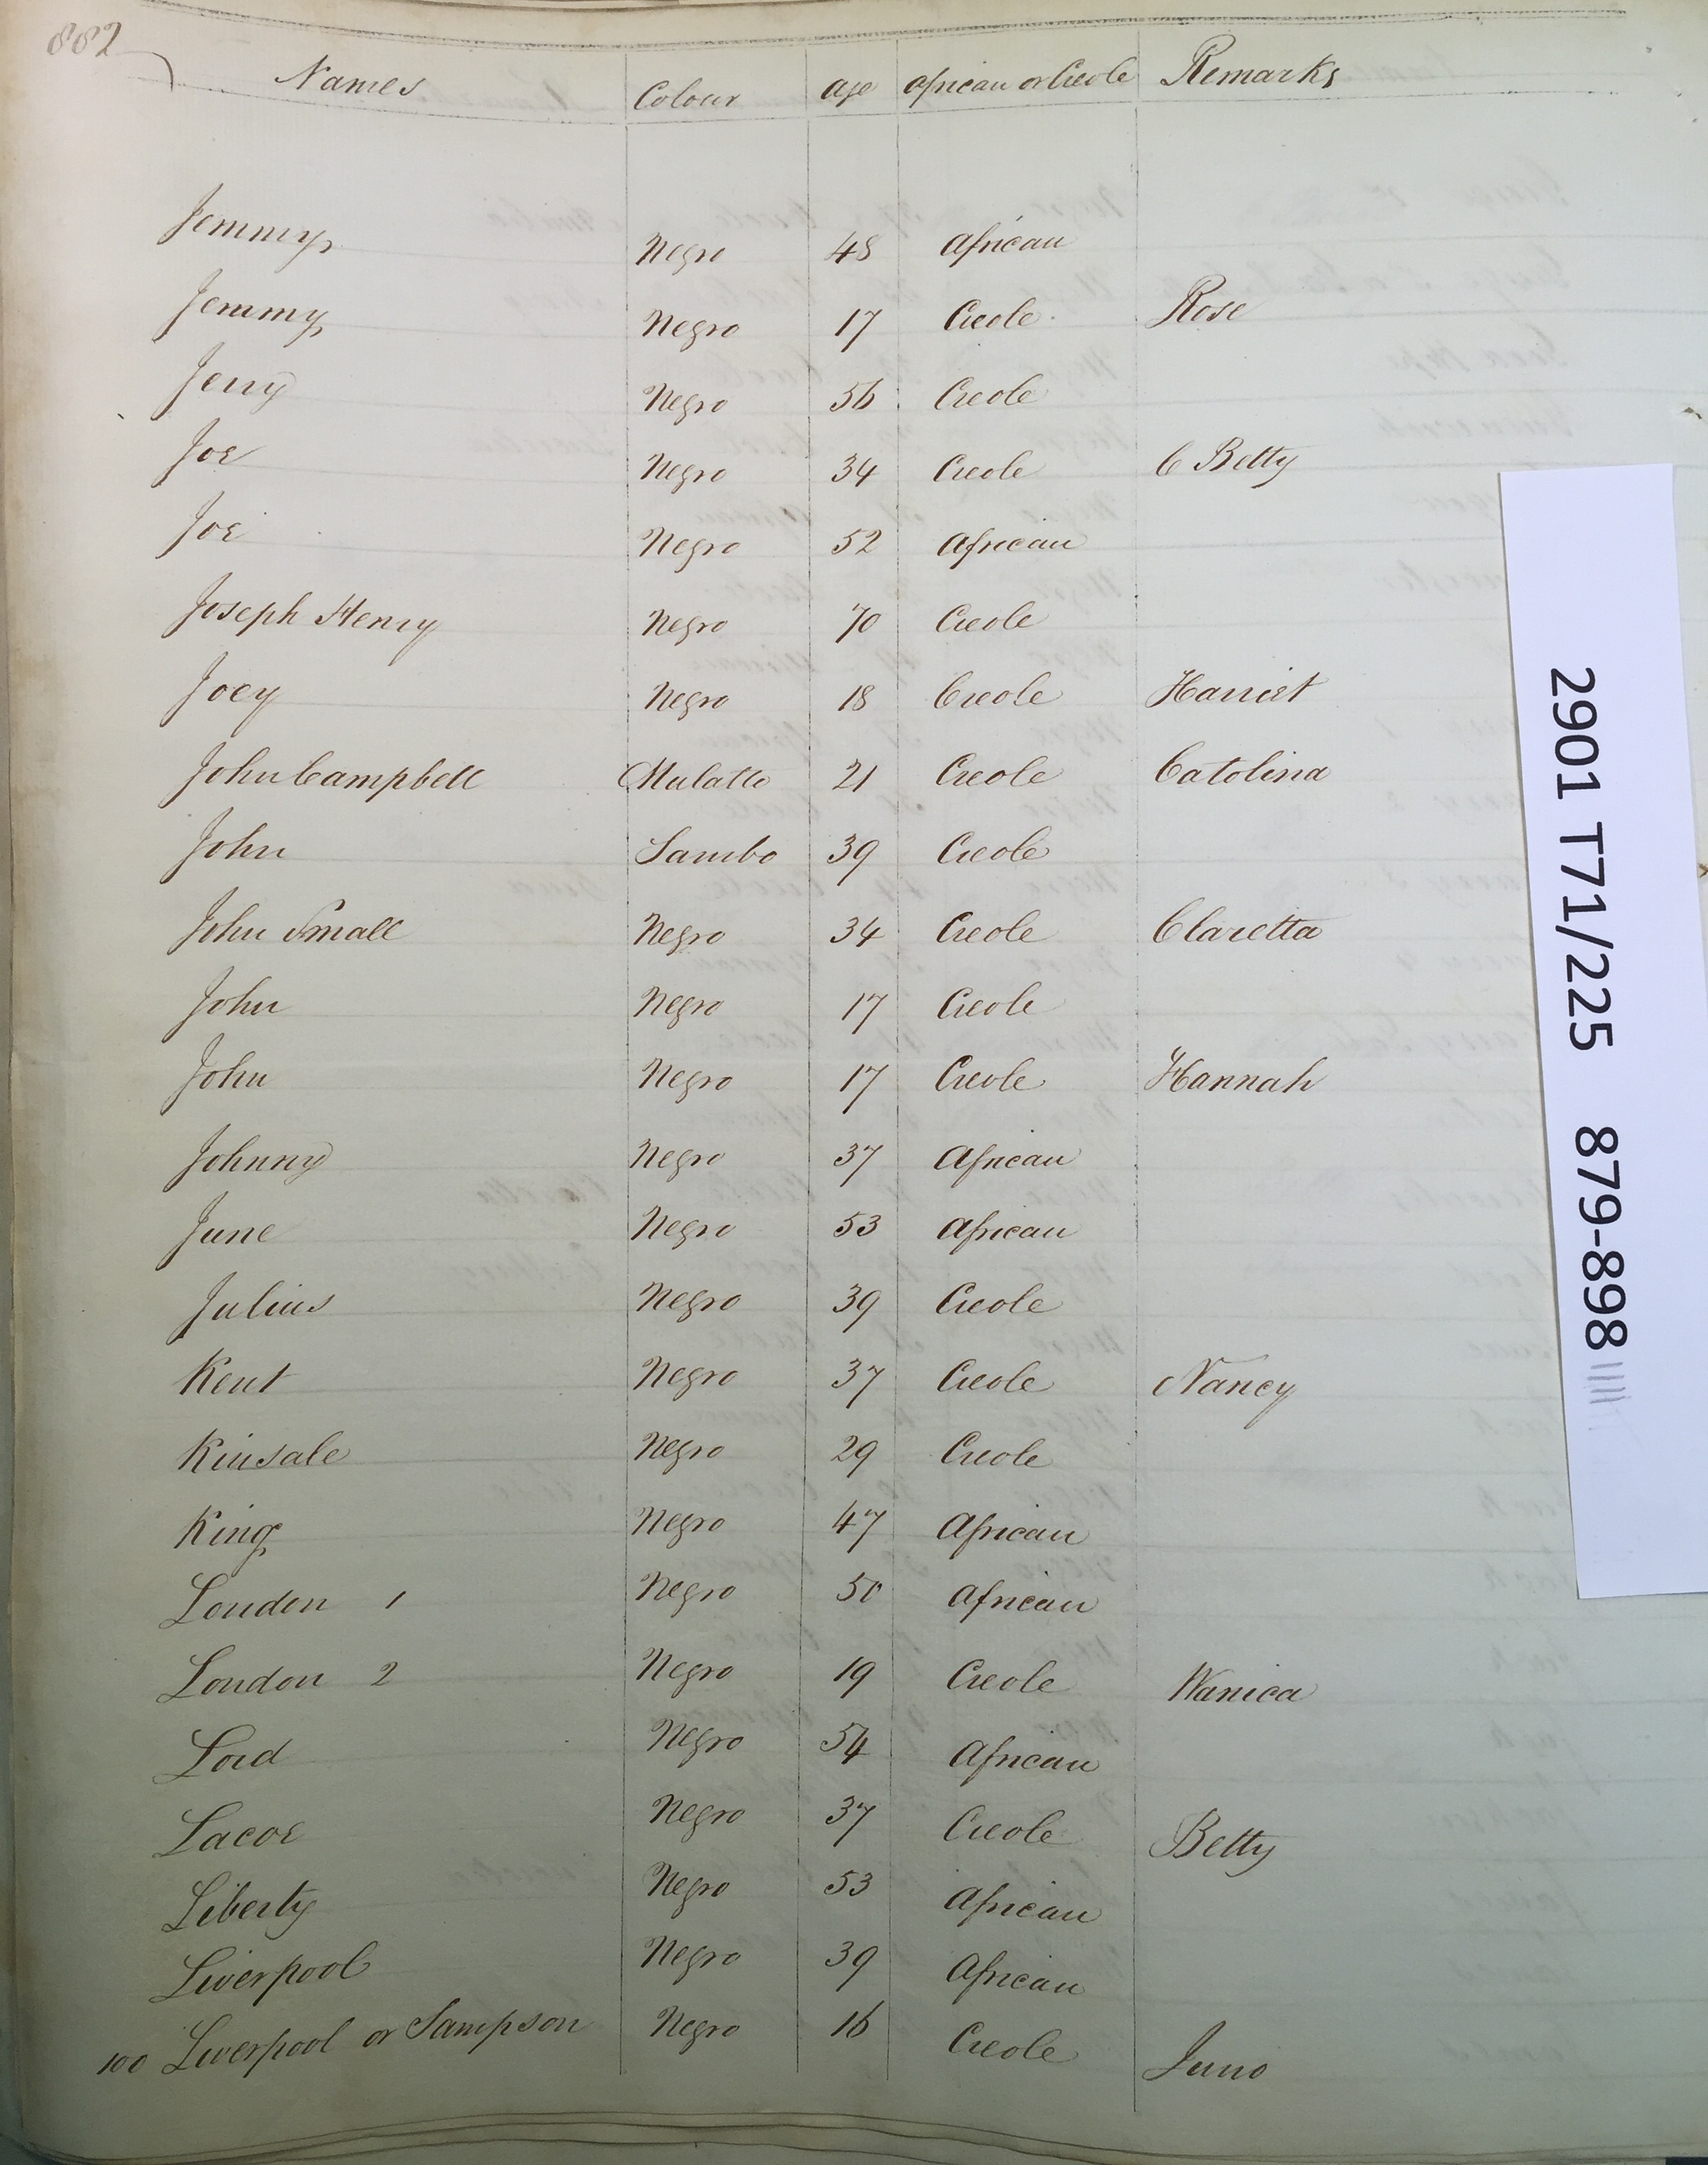 882
Names Colour Age African or Creole Remarks
Jemmy Negro 48 African
Jemmy Negro 17 Creole Rose
Jerry Negro 56 Creole
Joe Negro 34 Creole C Betty
Joe Negro 52 African
Joseph Henry Negro 70 Creole
Joey Negro 18 Creole Harriet
John Campbell Mulatto 21 Creole Catolina
John Sambo 39 Creole
John Small Negro 34 Creole Claretta
John Negro 17 Creole
John Negro 17 Creole Hannah
Johnny Negro 37 African
June Negro 53 African
Julius Negro 39 Creole
Kent Negro 37 Creole Nancy
Kinsale Negro 29 Creole
King Negro 47 African
London 1 Negro 50 African
London 2 Negro 19 Creole Wanica
Lord Negro 54 African
Lacoe Negro 37 Creole Betty
Liberty Negro 53 African
Liverpool Negro 39 African
100 Liverpool or Sampson Negro 16 Creole Juno
2901 T71/225 879-898